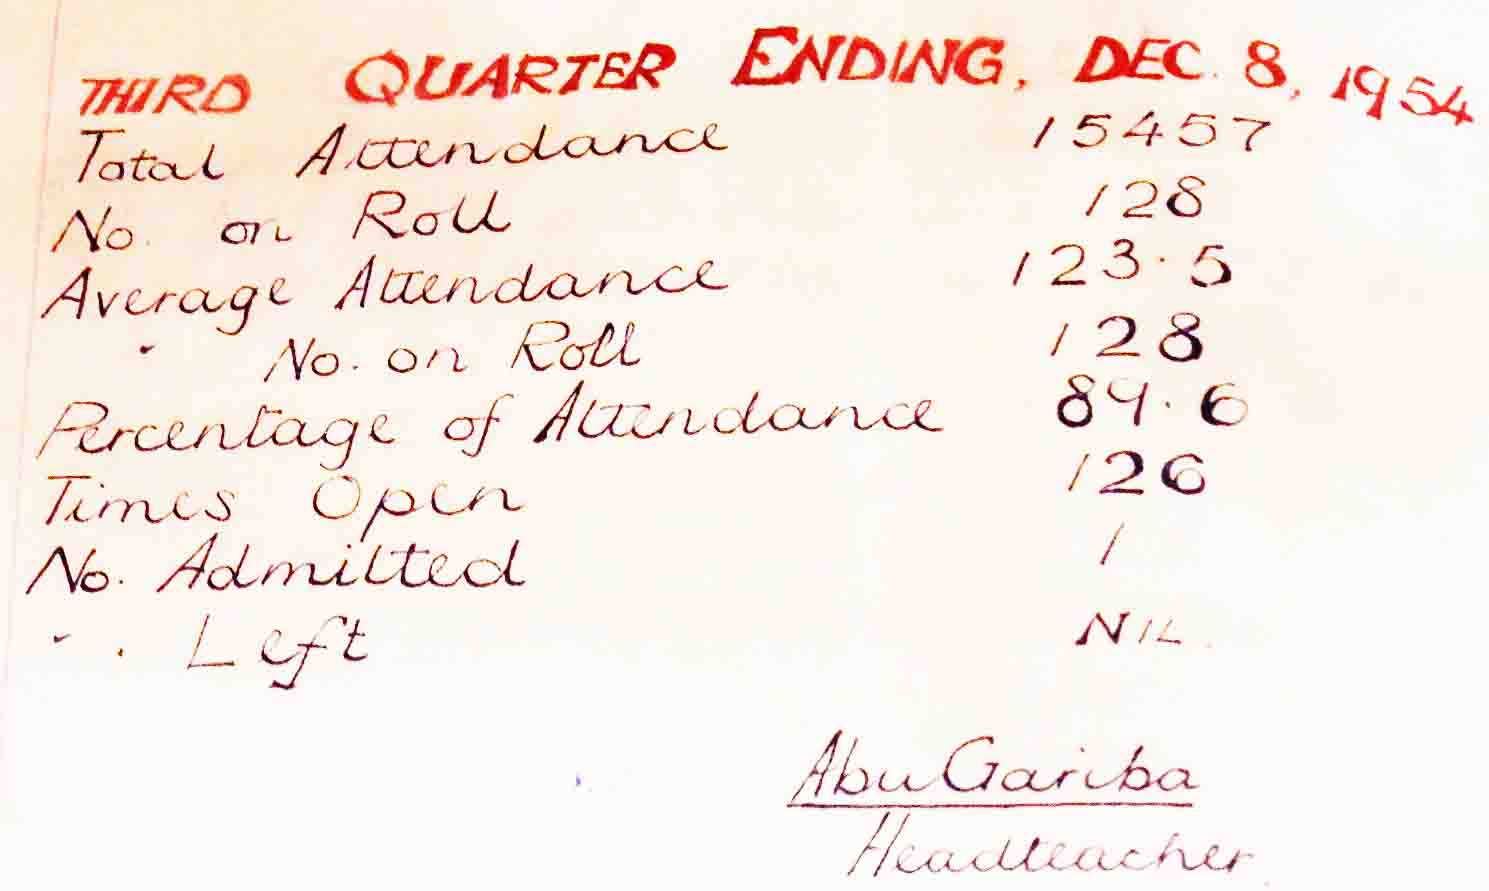 THIRD QUARTER ENDING, DEC. 8, 1954
Total Attendance 15457
No. on Roll 128
Average Attendance 123.5
" No. on Roll 128
Percentage of Attendance 89.6
Times Open 126
No. Admitted 1
" . Left NIL.
Abu Gariba
Headteacher